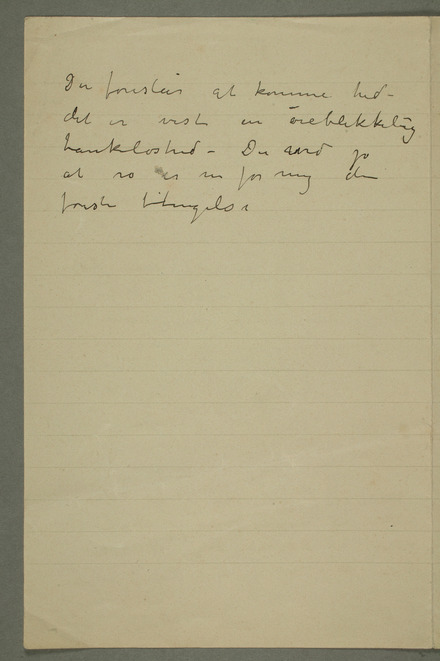 Du foreslår at komme hid –
det er vist en öieblikkelig
tankeløshed – Du ved jo
at ro er nu for mig den
første betingelse